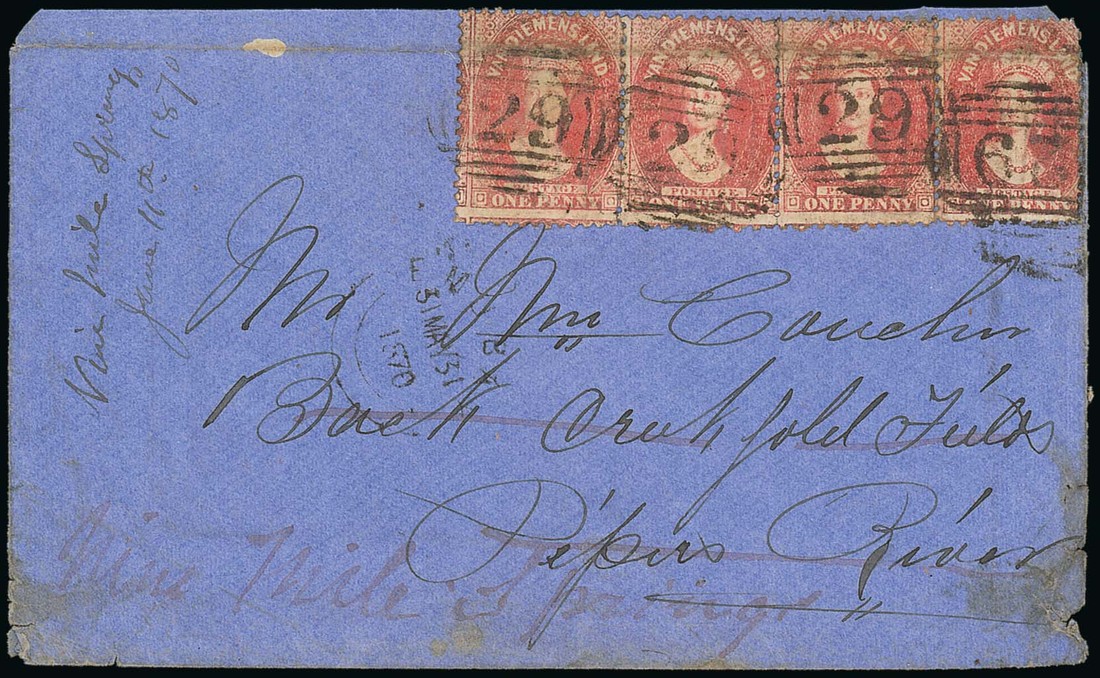 VAN DIEMENS LAND VAN DIEMENS LAND VAN DIEMENS LAND VAN DIEMENS LAND
29 29 67
POSTAGE POSTAGE POSTAGE
ONE PENNY ONE PENNY ONE PENNY ONE PENNY
Nine Mile Springs
June 11th 1870
31 MAY 31
1870
Mr Wm
Back Creek Gold Fields
Pipers River
Nine Mile Springs